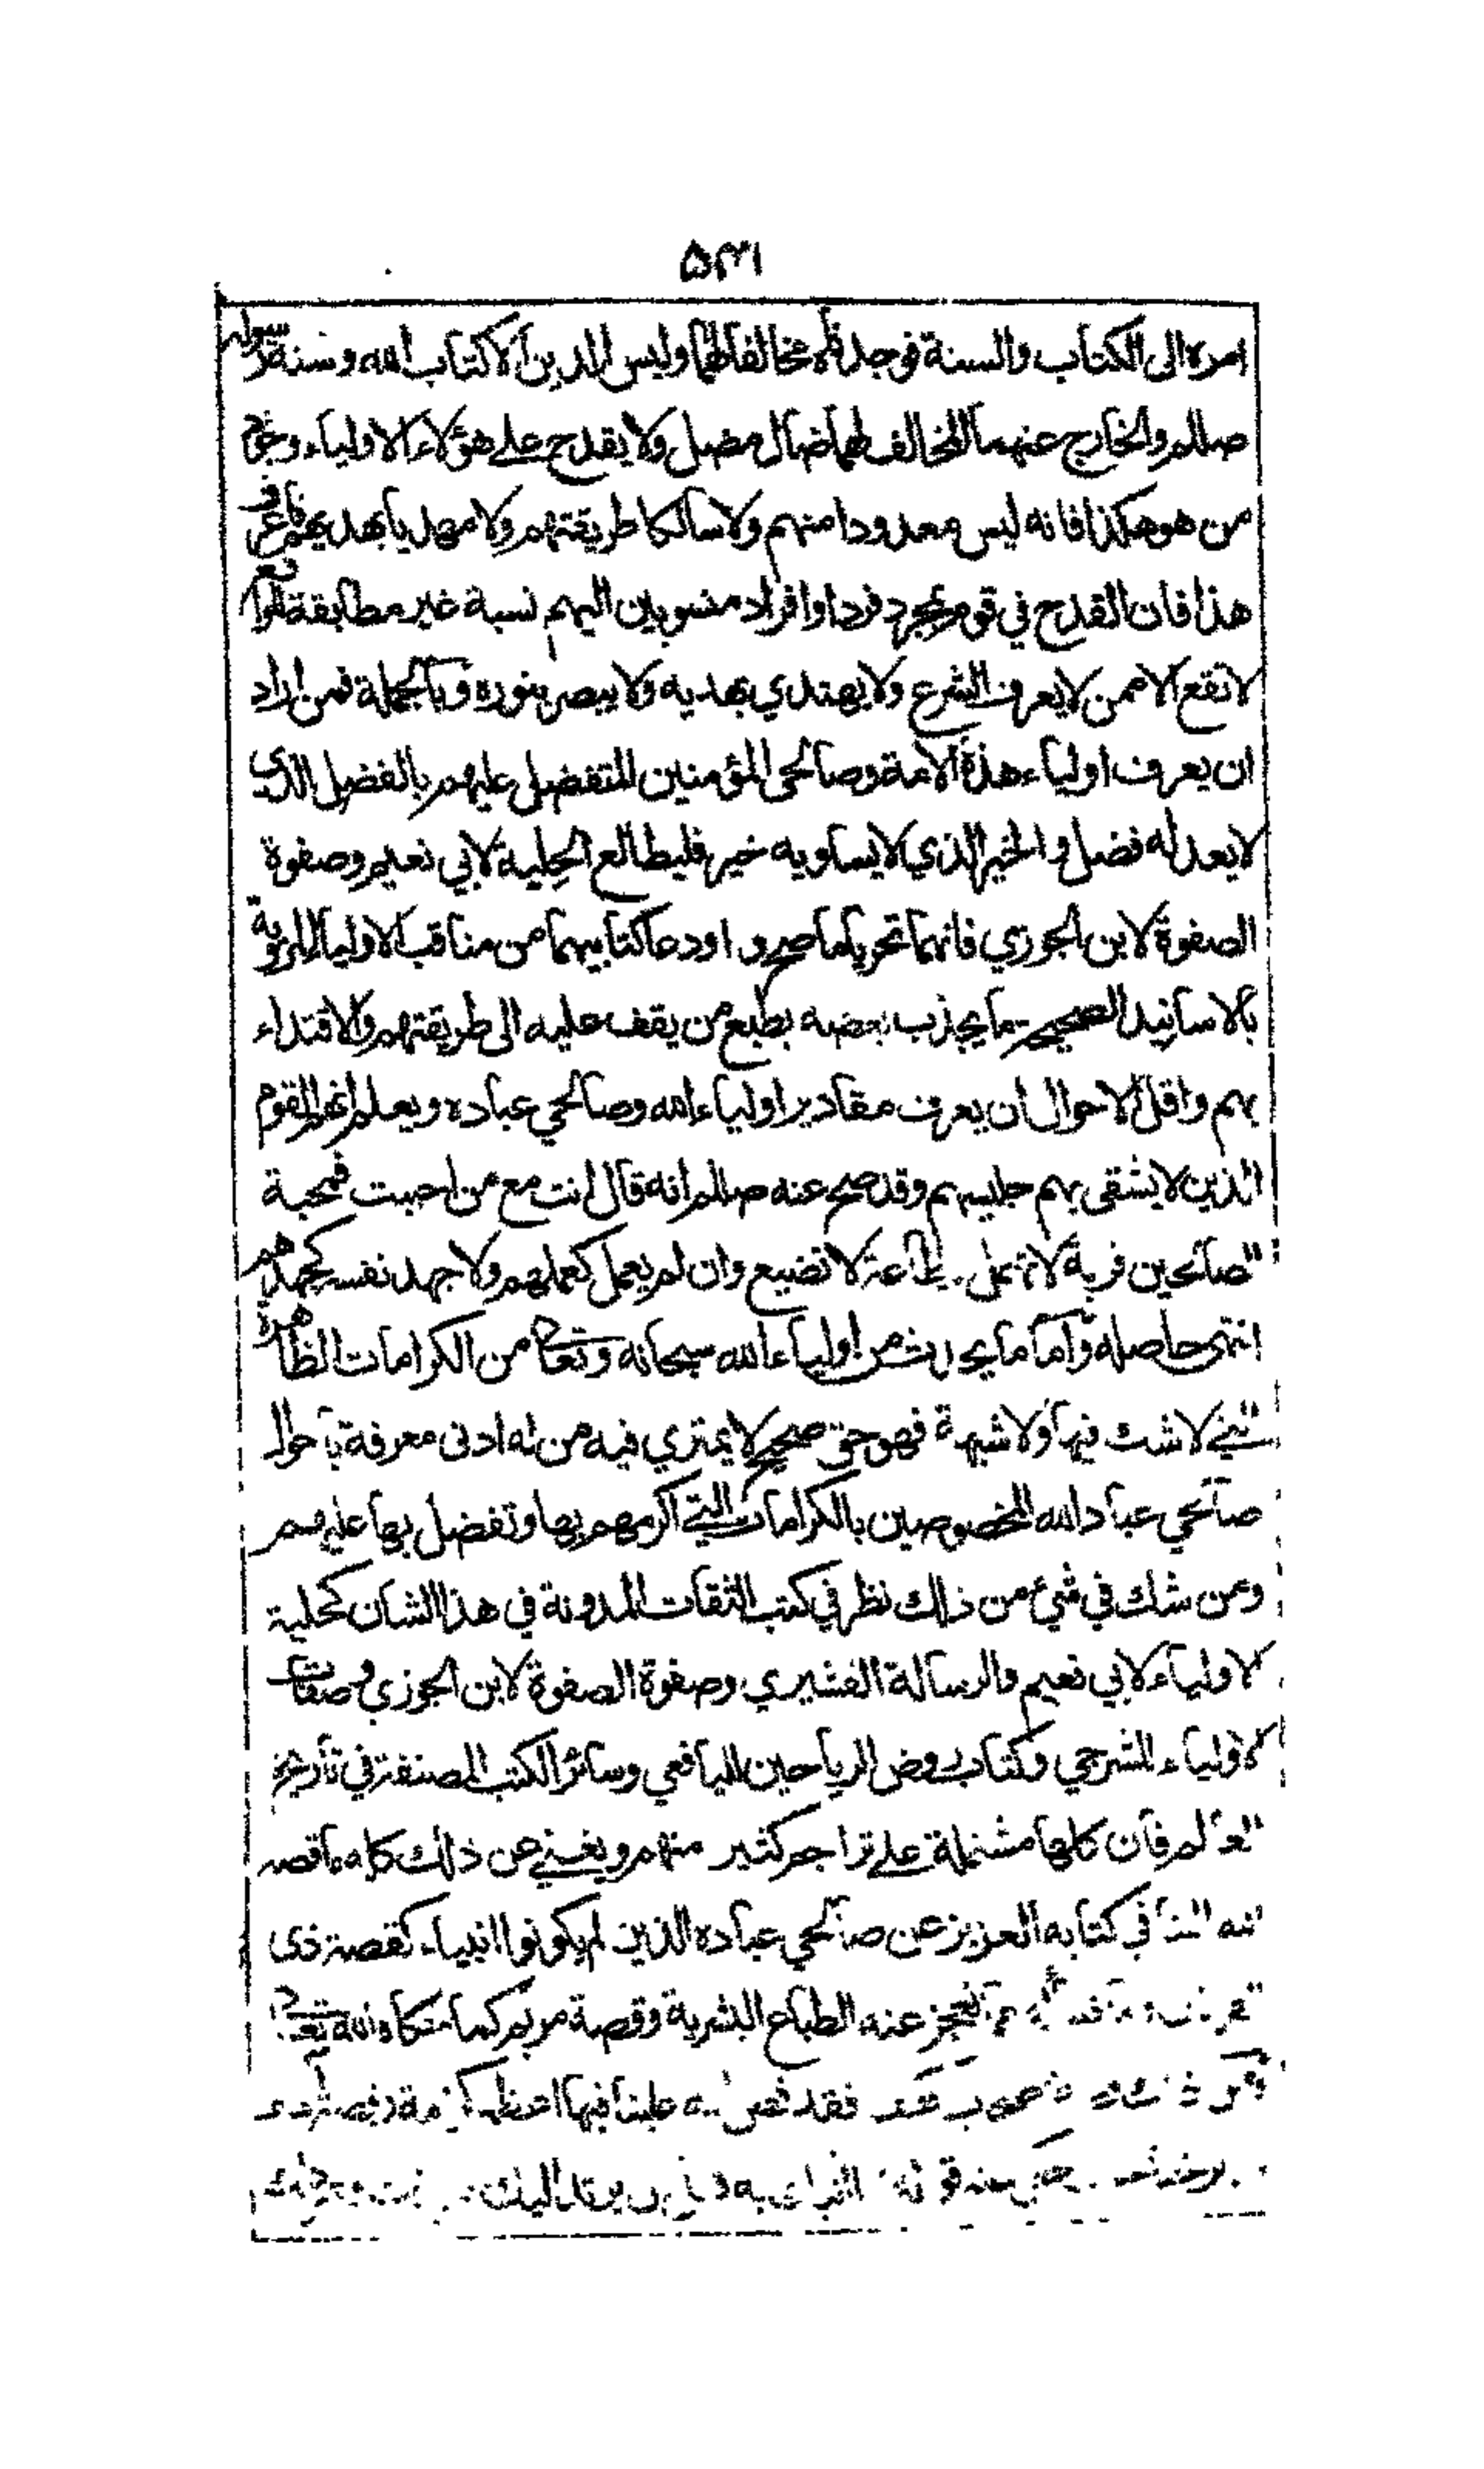 ۵۳۱
امره الى الكتاب والسنة فوجد فلا مخالفا لهما وليس الدين الا كتاب الله وسنة رسوله
صللم والخارج عنهما المخالف لهما ضال مضل ولا يقدح على هؤلاء الاولياء وجود
من هو هكذا فانه ليس معدودا منهم ولا سالكا طريقتهم ولا مهديا بهديهم فاعرف
هذا فان القدح في قوم بمجرد فرد او افراد منسوبين اليهم نسبة غير مطابقة للواقع
لا تقع الا ممن لا يعرف الشرع ولا يهتدي بهديه ولا يبصر بنوره وبالجملة فمن اراد
ان يعرف اولياء هذه الامة وصالحى المؤمنين المتفضل عليهم بالفضل الذي
لا يعدله فضل والخير الذي لا يساويه خير فليطالع الحلية لابي نعيم وصفوة
الصفوة لابن الجوزي فانهما تحريا ما صح و اودعا كتابيهما من مناقب الاولياء المروية
بالاسانيد الصحيحة ما يجذب بعضه بطبع من يقف عليه الى طريقتهم والاقتداء
بهم واقل الاحوال ان يعرف مقادير اولياء الله وصالحي عباده ويعلم انهم القوم
الذين لا يشقى بهم جليسهم وقد صح عنه صللم انه قال انت مع من احببت فمحبة
الصالحين قربة لا تهمل وطاعة لا تضيع وان لم يعمل كعملهم ولا جهد نفسه كجهدهم
انتهى حاصله واما ما يحدث من اولياء الله سبحانه وتعالى من الكرامات الظاهرة
التي لا شك فيها ولا شبهة فهو حق صحيح لا يمتري فيه من له ادنى معرفة باحوال
صالحي عباد الله المخصوصين بالكرامات التي اكرمهم بها وتفضل بها عليهم
ومن شك في شيء من ذلك نظر في كتب الثقات المدونة في هذا الشان كحلية
الاولياء لابي نعيم والرسالة القشيري وصفوة الصفوة لابن الجوزي وطبقات
الاولياء للشرجي وكتاب روض الرياحين لليافعي وسائر الكتب المصنفة في تاريخ
العالم فان كلها مشتملة على تراجم كثير منهم ويغني عن ذلك كله ما قصه
الله الينا في كتابه العزيز عن صالحي عباده الذين لم يكونوا انبياء كقصة ذي
القرنين وما تهيأ له مما تعجز عنه الطباع البشرية وقصة مريم كما حكاه الله تعالى
ومن ذلك فقد قص الله علينا فيها اعظم كرامة وقصة اصف
بن برخيا حيث حكى عنه قوله انا اتيك به قبل ان يرتد اليك